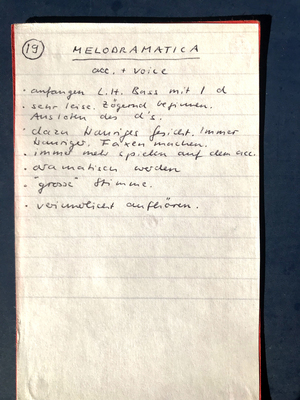 19 MELODRAMATICA
acc. + voice
· anfangen L.H. Bass mit 1 d
· sehr leise. Zögernd beginnen.
Ausloten des d's.
· dazu trauriges Gesicht. Immer
trauriger. Faxen machen.
· immer mehr spielen auf dem acc.
· dramatisch werden
· "grosse" Stimme.
· verinnerlicht aufhören.